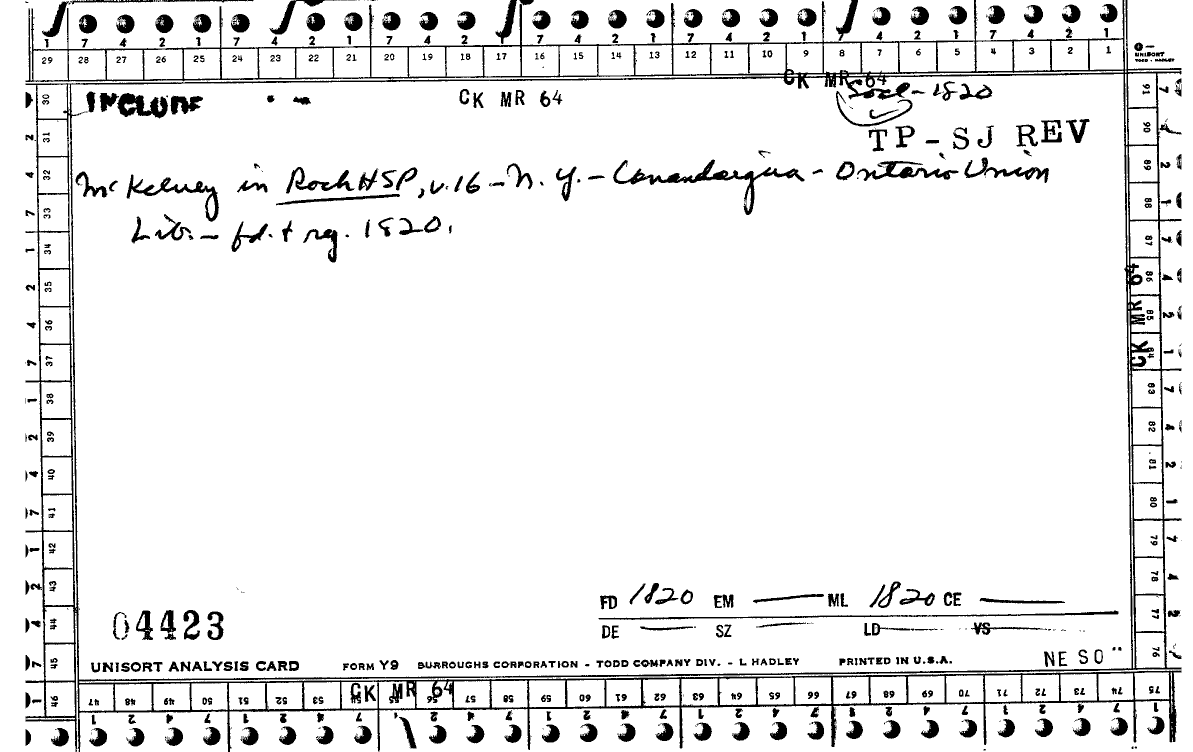 1 7 4 2 1 7 4 2 1 7 4 2 1 7 4 2 1 7 4 2 1 7 4 2 1 7 4 2 1
29 28 27 26 25 24 23 22 21 20 19 18 17 16 15 14 13 12 11 10 9 8 7 6 5 4 3 2 1
UNISORT
TODD - HADLEY
INCLUDE
CK MR 64
CK MR 64
Socl - 1820
TP - SJ REV
McKelvey in RochHSP, v.16 - N.Y. - Canandaigua - Ontario Union
Lib. - fd. + rg. 1820.
30 31 32 33 34 35 36 37 38 39 40 41 42 43 44 45 46
91 90 89 88 87 86 85 84 83 82 81 80 79 78 77 76
CK MR 64
FD 1820 EM — ML 1820 CE —
DE — SZ — LD — VS
04423
UNISORT ANALYSIS CARD FORM Y9 BURROUGHS CORPORATION - TODD COMPANY DIV. - L HADLEY PRINTED IN U.S.A. NE SO
CK MR 64
47 48 49 50 51 52 53 54 55 56 57 58 59 60 61 62 63 64 65 66 67 68 69 70 71 72 73 74 75
1 2 4 7 1 2 4 7 1 2 4 7 1 2 4 7 1 2 4 7 1 2 4 7 1 2 4 7 1